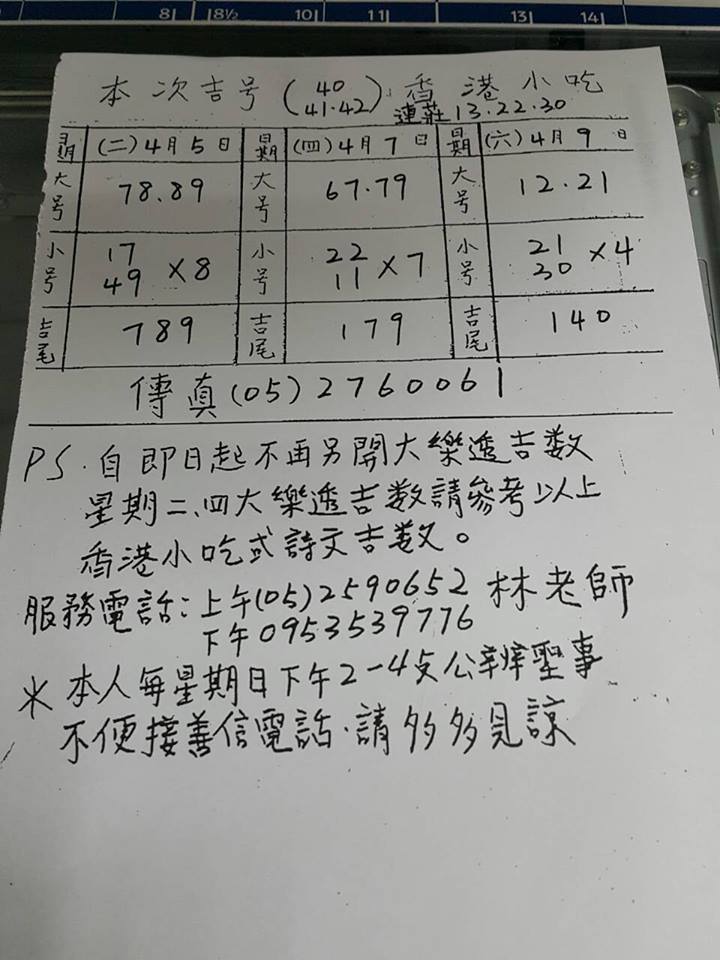 8 8½ 10 11 13 14
本次吉号(40 41.42)香港小吃
連莊13.22.30
星期 (二)4月5日 星期 (四)4月7日 星期 (六)4月9日
大号 78.89 大号 67.79 大号 12.21
小号 17 49 ×8 小号 22 11 ×7 小号 21 30 ×4
吉尾 789 吉尾 179 吉尾 140
傳真(05)2760061
PS.自即日起不再另開大樂透吉数
星期二、四大樂透吉数請參考以上
香港小吃或詩文吉数。
服務電話:上午(05)2590652 林老師
下午0953539776
*本人每星期日下午2-4支公辦聖事
不便接善信電話.請多多見諒